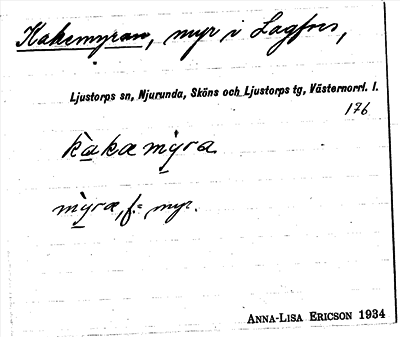 Kakemyran, myr i Lagfors,
Ljustorps sn, Njurunda, Sköns och Ljustorps tg, Västernorrl. l.
176
kakamýra
mýra, f. = myr.
ANNA-LISA ERICSON 1934